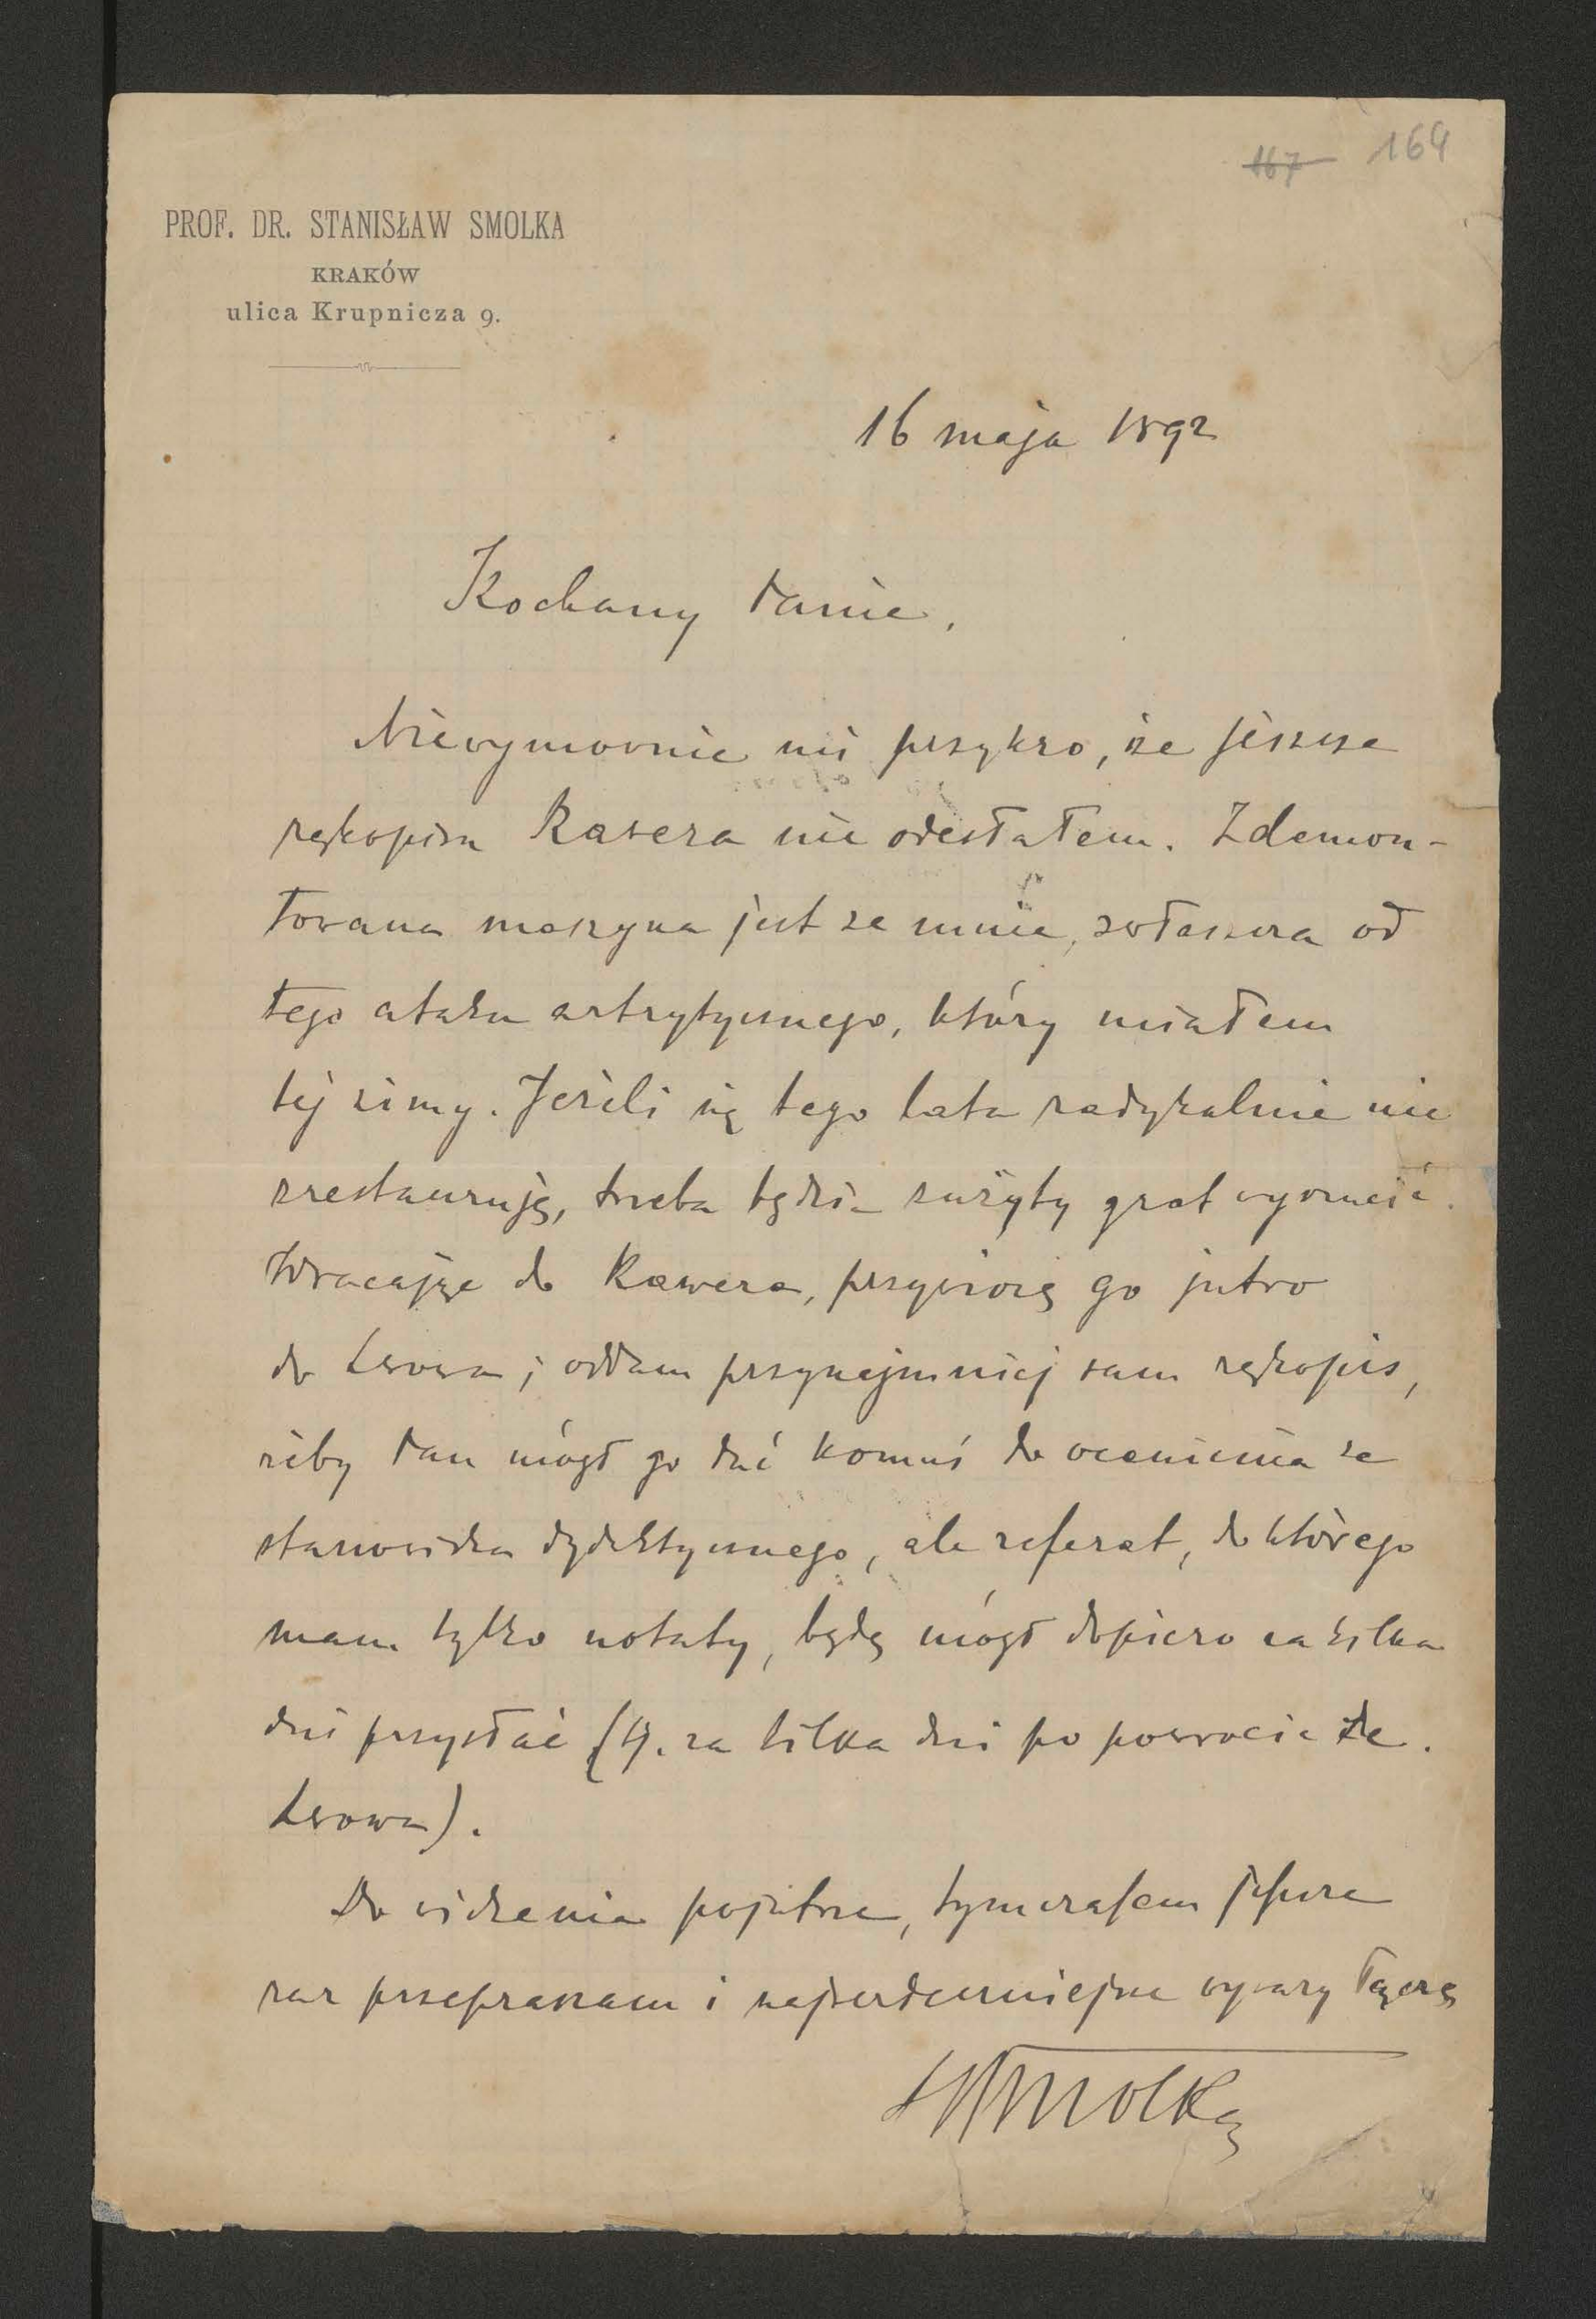 167 164
PROF. DR. STANISŁAW SMOLKA
KRAKÓW
ulica Krupnicza 9.
16 maja 1892
Kochany Panie,
Niewymownie mi przykro, że jeszcze
rękopisu Rawera nie odesłałem. Zdemon-
towana maszyna jest ze mnie, zwłaszcza od
tego ataku artrytycznego, który miałem
tej zimy. Jeżeli się tego lata radykalnie nie
zrestauruję, trzeba będzie zużyty grat wyrzucić.
Wracając do Rawera, przywiozę go jutro
do Lwowa; oddam przynajmniej sam rękopis,
żeby Pan mógł go dać komuś do ocenienia ze
stanowiska dydaktycznego, ale referat, do którego
mam tylko notaty, będę mógł dopiero za kilka
dni przysłać (tj. za kilka dni po powrocie ze
Lwowa).
Do widzenia pojutrze, tymczasem jeszcze
raz przepraszam i najserdeczniejsze wyrazy łączę
SSmolka